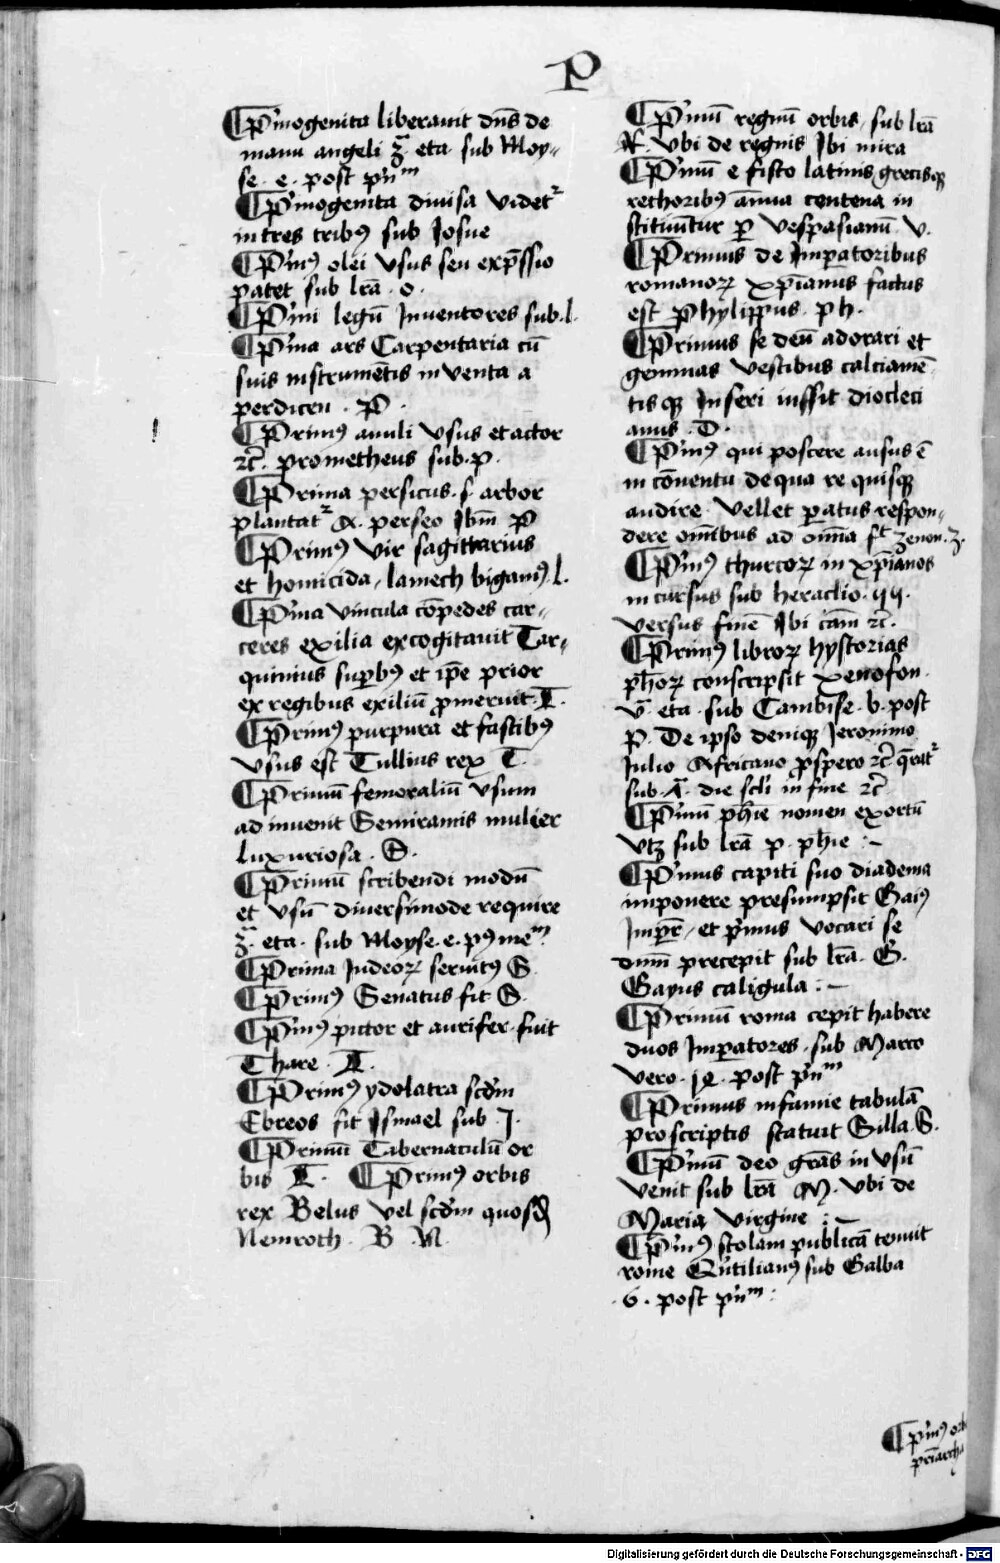 P
¶ P'mogenita liberauit dn̄s de
manu angeli 3ᵃ eta sub Moy-
se . e . post p'nᵐ
¶ P'mogenita diuisa videtʳ
in tres tribꝰ sub Josue
¶ P'mꝰ olei vsus seu exp̄ssio
patet sub lrā . o .
¶ P'mi legū Inuentores sub . l .
¶ P'ma ars Carpentaria cū
suis instrumētis inventa a
perdicen . P .
¶ Primꝰ anuli vsus et actor
⁊c̄ . prometheus sub . p .
¶ Prima persicus . s . arbor
plantatʳ perseo Ibm̄ P
¶ Primꝰ vir sagittarius
et homicida , lamech bigamꝰ . l .
¶ P'ma vincula cōpedes car-
ceres exilia excogitauit Tar-
quinius sup̱bꝰ et ip̄e prior
ex regibus exiliū ꝓmeruit . T .
¶ Primꝰ purpura et fascibꝰ
vsus est Tullius rex T .
¶ Primū femoraliū vsum
ad inuenit Semiramis mulier
luxuriosa . S .
¶ Primū scribendi modū
et vsū diuersimode require
3ᵃ . eta . sub Moyse . e . pꝰ meᵐ
¶ Prima Judeoꝝ seruitꝰ S
¶ Primꝰ Senatus fit S .
¶ P'mꝰ pictor et aurifex fuit
Thare . T .
¶ Primꝰ ydolatra scd̄m
Ebreos fit Ismael sub . J .
¶ Primū Tabernaculū or
bis T . ¶ Primꝰ orbis
rex Belus vel scd̄m quosd̄
Nemroth . B . N .
¶ P'mū regnū orbis , sub lrā
R . vbi de regnis Ibi mira
¶ P'mū e fisco latinis grecisqꝫ
rethoribꝰ ānua centena in
stituūtur ꝑ vespasianū . v .
¶ Primus de Imꝑatoribus
romanoꝝ xp̄ianus factus
est Phylippus . ph .
¶ Primus se deū adorari et
gemmas vestibus calciamē
tisqꝫ Inseri iussit diocleci
anus . D .
¶ P'mꝰ qui poscere ausus ē
in cōuentu de qua re quisqꝫ
audire vellet ꝑatus respon-
dere om̄ibus ad om̄ia fᵗ zenon . z .
¶ P'mꝰ thurcoꝝ in xp̄ianos
incursus sub heraclio . qq .
versus finē Ibi cām ⁊c̄ .
¶ Primꝰ libroꝝ hystorias
ph̄oꝝ conscripsit xenofon .
v̄ eta . sub Cambise . b . post
p . De ipso deniqꝫ Jeronimo
Julio Africano ꝓspero ⁊c̄ q̄ratʳ
sub . A . die scl̄i in fine ⁊c̄
¶ P'mū ph̄ie nomen exortū
vtꝫ sub lrā p . ph̄ie :~
¶ P'mus capiti suo diadema
imponere presumpsit Gaiꝰ
Imꝑr , et p'mus vocari se
dn̄m precepit sub lrā . G .
Gayus caligula :~
¶ Primū roma cepit habere
duos Imꝑatores . sub Marco
vero . post p'nᵐ
¶ Primus infamie tabulā
proscriptis statuit Silla . S .
¶ P'mū deo grās in vsū
venit sub lrā M . vbi de
Maria virgine :~
¶ P'mꝰ scolam publicā tenuit
rome Q'ntilianꝰ sub Galba
. 6 . post p'nᵐ :
¶ P'mꝰ orb
Digitalisierung gefördert durch die Deutsche Forschungsgemeinschaft - DFG